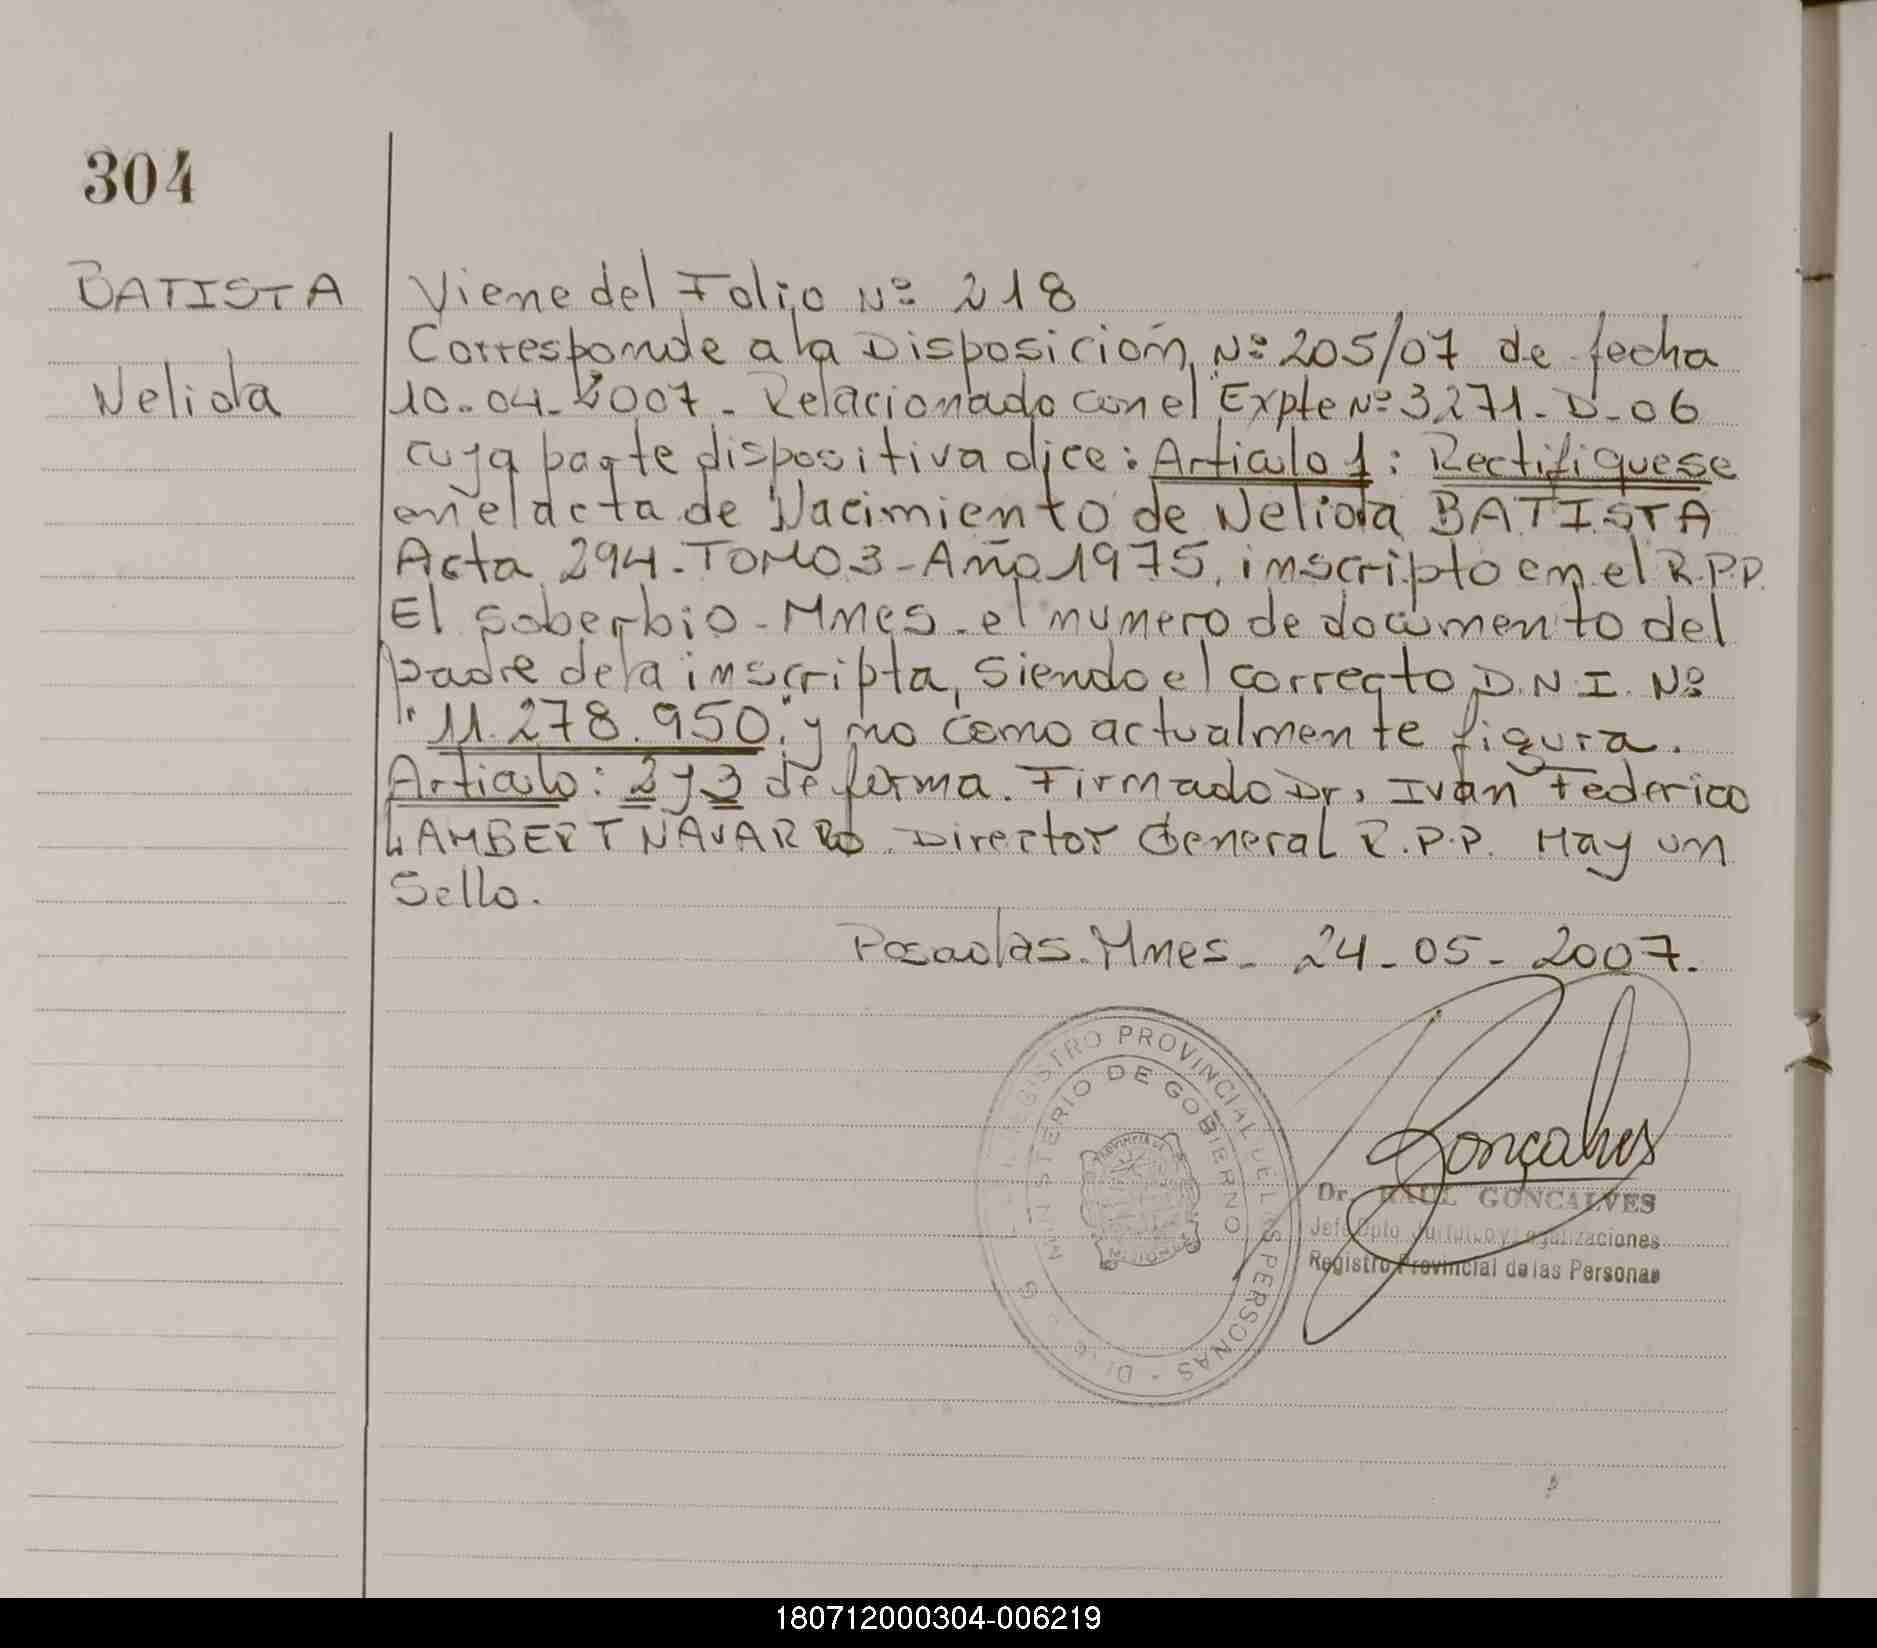 304
BATISTA
Nelida
Viene del Folio Nº 218
Corresponde a la Disposición Nº 205/07 de fecha
10-04-2007- Relacionado con el Expte Nº 3271-D-06
cuya parte dispositiva dice: Articulo 1: Rectifiquese
en el acta de Nacimiento de Nelida BATISTA
Acta 294-TOMO 3-Año 1975, inscripto en el R.P.P.
El Soberbio-Mnes. el numero de documento del
padre de la inscripta, siendo el correcto D.N.I. Nº
"11.278.950" y no como actualmente figura.
Articulo: 2 y 3 de forma. Firmado Dr, Ivan Federico
LAMBERT NAVARRO. Director General R.P.P. Hay un
Sello.
Posadas-Mnes- 24-05-2007.
REGISTRO PROVINCIAL DE LAS PERSONAS
MINISTERIO DE GOBIERNO
Gonçalves
Dr. RAUL GONCALVES
Jefe Dpto Juridico y Legalizaciones
Registro Provincial de las Personas
180712000304-006219